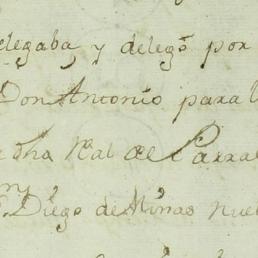 delegaba, y delegó por
Don Antonio para l
dha Ral de Parral
Diego de Minas nue